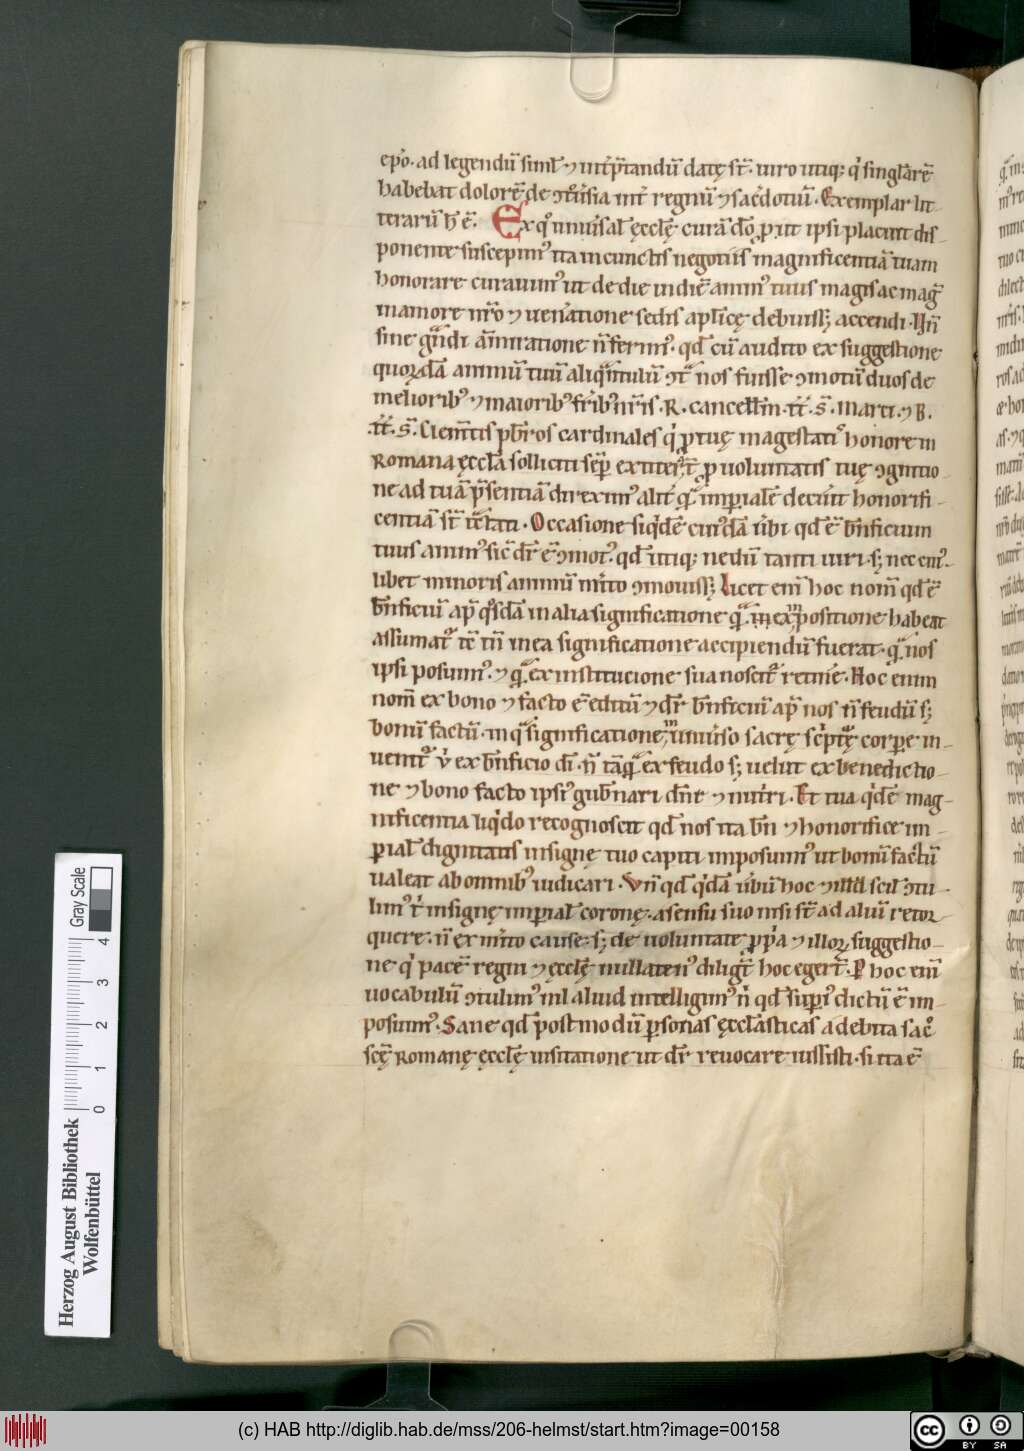 ep̄o. ad legendū siml̄ ⁊ int̄p̄tandū datę st̄. uiro utiq; q̇ singlārē
habebat dolorē de ꝯt̊uersia int̄ regnū ⁊ sac̄dotiū. Exemplar lit
terarū h̄ ē. Ex q̊ uniu̇sal̄ ęcclę̄ curā dō ꝓut ipsi placuit dis-
ponente suscepim᷒ ita in cunctis negotiis magnificentiā tuam
honorare curauim᷒ ut de die in diē anim᷒ tuus magis ac mag̃
in amore nr̄o ⁊ uenatione sedis apl̄icę debuiss; accendi. Vn̄
sine g̃ndi ām̄iratione n̄ ferim᷒. qd̄ cū audito ex suggestione
quorꝗdā animū tuū aliq̃ntulū ꝯt̃ nos fuisse ꝯmotū duos de
meliorib᷒ ⁊ maiorib᷒ fr̄ib᷒ nr̄is. R. cancell̄m. tt̄. s̄. Marci. ⁊ B.
tt̄. s̄. Clem̄tis pb̄r̄os cardinales q̇ ꝓ tuę magestatī honore in
Romana ęcclā solliciti sēp̄ extiter̃t ꝓ uoluntatis tuę ꝯgnitio
ne ad tuā p̄sentiā direxim᷒ alit̄ q̃ imp̄ialē decu̇it honorifi-
centiā st̄ tc̄tati. Occasione siq̇dē cui᷒dā u̇bi qd̄ ē bn̄ficium
tuus anim᷒ sic̄ dr̄ ē ꝯmot᷒. qd̄ utiq; nedū tanti uiri. s; nec cui᷒-
libet minoris animū m̄ito ꝯmouiss; Licet em̄ hoc nom̄ qd̄ ē
bn̄ficiū ap̄ q̊sdā in alia significatione q̃ in ex īpositione habeat
assumat᷑ tc̄ tn̄ in ea significatione accipiendū fuerat. q̃ nos
ipsi posuim᷒. ⁊ q̃ ex institucione sua noscit᷑ retinē. Hoc enim
nom̄ ex bono ⁊ facto ē editū ⁊ dr̄ bn̄ficiū ap̄ nos n̄ feudū s;
bonū factū. in q̃ significatione in uniu̇so sacrę sc̄ptę corpe in-
uenit᷑ v̇ ex bn̄ficio dī. n̄ tāq̃ ex feudo s; uelut ex benedictio-
ne ⁊ bono facto ipsi᷒ gub̄nari dn̄r ⁊ nut̄ri. Et tua q̇dē mag-
nificentia liq̇do recognoscit qd̄ nos ita bn̄ ⁊ honorifice im-
p̄ial̄ dignitatis insignę tuo capiti imposuim᷒ ut bonū factū
ualeat ab omnib᷒ iudicari. Vn̄ qd̄ q̇dā u̇bū hoc ⁊ illd̄ scil̄ ꝯtu-
lim᷒ t̄ insignę imp̄ial̄ coronę. a sensu suo nisi st̄ ad aliū retor-
quere. n̄ ex m̄ito cause. s; de uoluntate ꝓp̄a ⁊ illorꝝ suggestio-
ne q̇ pacē regni ⁊ ęcclę̄ nullaten᷒ diligt̃ hoc egert̄. P̱ hoc em̄
uocabulū ꝯtulim᷒ nl̄ aliud intelligim᷒ n̄ qd̄ sup̄i᷒ dictū ē im-
posuim᷒. Sane qd̄ postmodū p̄sonas ęcclāsticas a debita sac̊
scę̄ Romanę ęcclę̄ uisitatione ut dr̄ reuocare iussisti. si ita ē
Herzog August Bibliothek
Wolfenbüttel
Gray Scale
0 1 2 3 4
(c) HAB http://diglib.hab.de/mss/206-helmst/start.htm?image=00158
cc BY SA